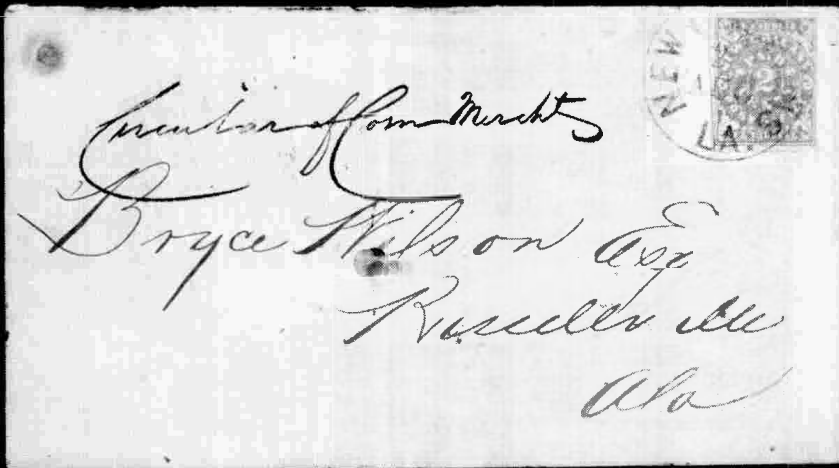 NEW
LA.
2
Circular of Com Merchts
Bryce Wilson Esq
Russellville
Ala